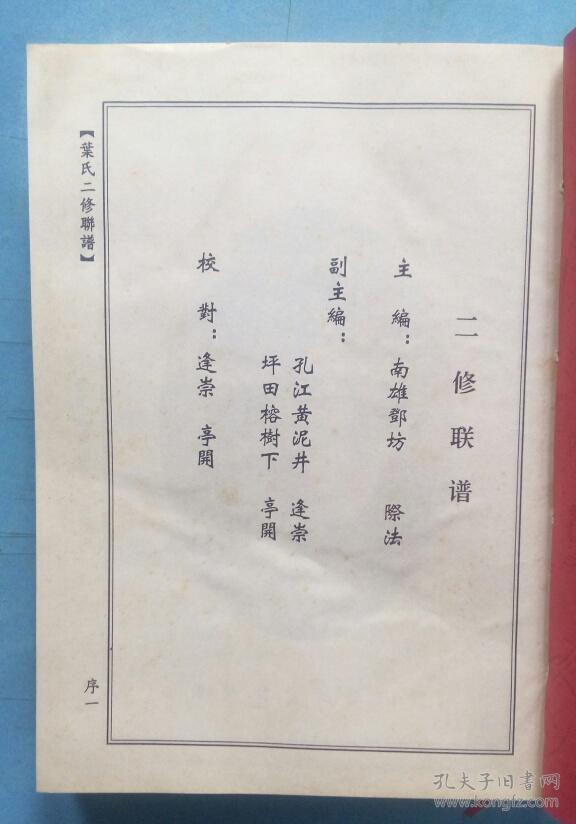 二修联谱
主編：南雄鄧坊 際法
副主編：
孔江黄泥井 逢崇
坪田榕樹下 亭開
校對：逢崇 亭開
【葉氏二修聯譜】
序一
孔夫子旧书网
www.kongfz.com